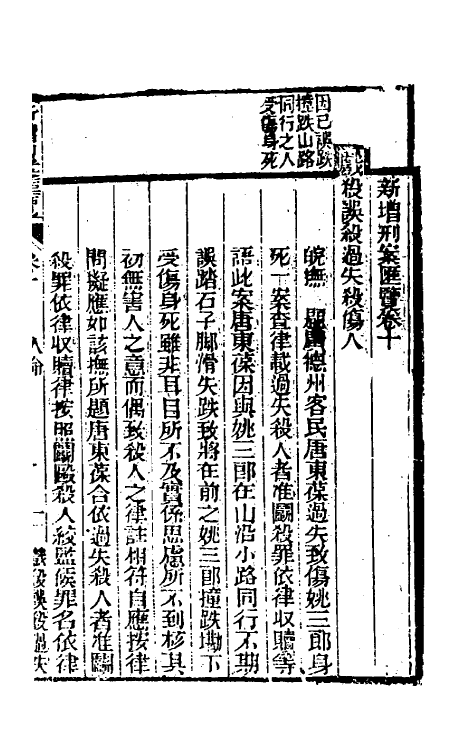 新增刑案匯覽卷十
戲殺誤殺過失殺傷人
因己誤跌
撞跌山路
同行之人
受傷身死
皖撫　題廣德州客民唐東葆過失致傷姚三郎身
死一案查律載過失殺人者准鬭殺罪依律收贖等
語此案唐東葆因與姚三郎在山沿小路同行不期
誤踏石子脚滑失跌致將在前之姚三郎撞跌磡下
受傷身死雖非耳目所不及實係思慮所不到核其
初無害人之意而偶致殺人之律註相符自應按律
問擬應如該撫所題唐東葆合依過失殺人者准鬭
殺罪依律收贖律按照鬭毆殺人絞監候罪名依律
人命
戲殺誤殺過失